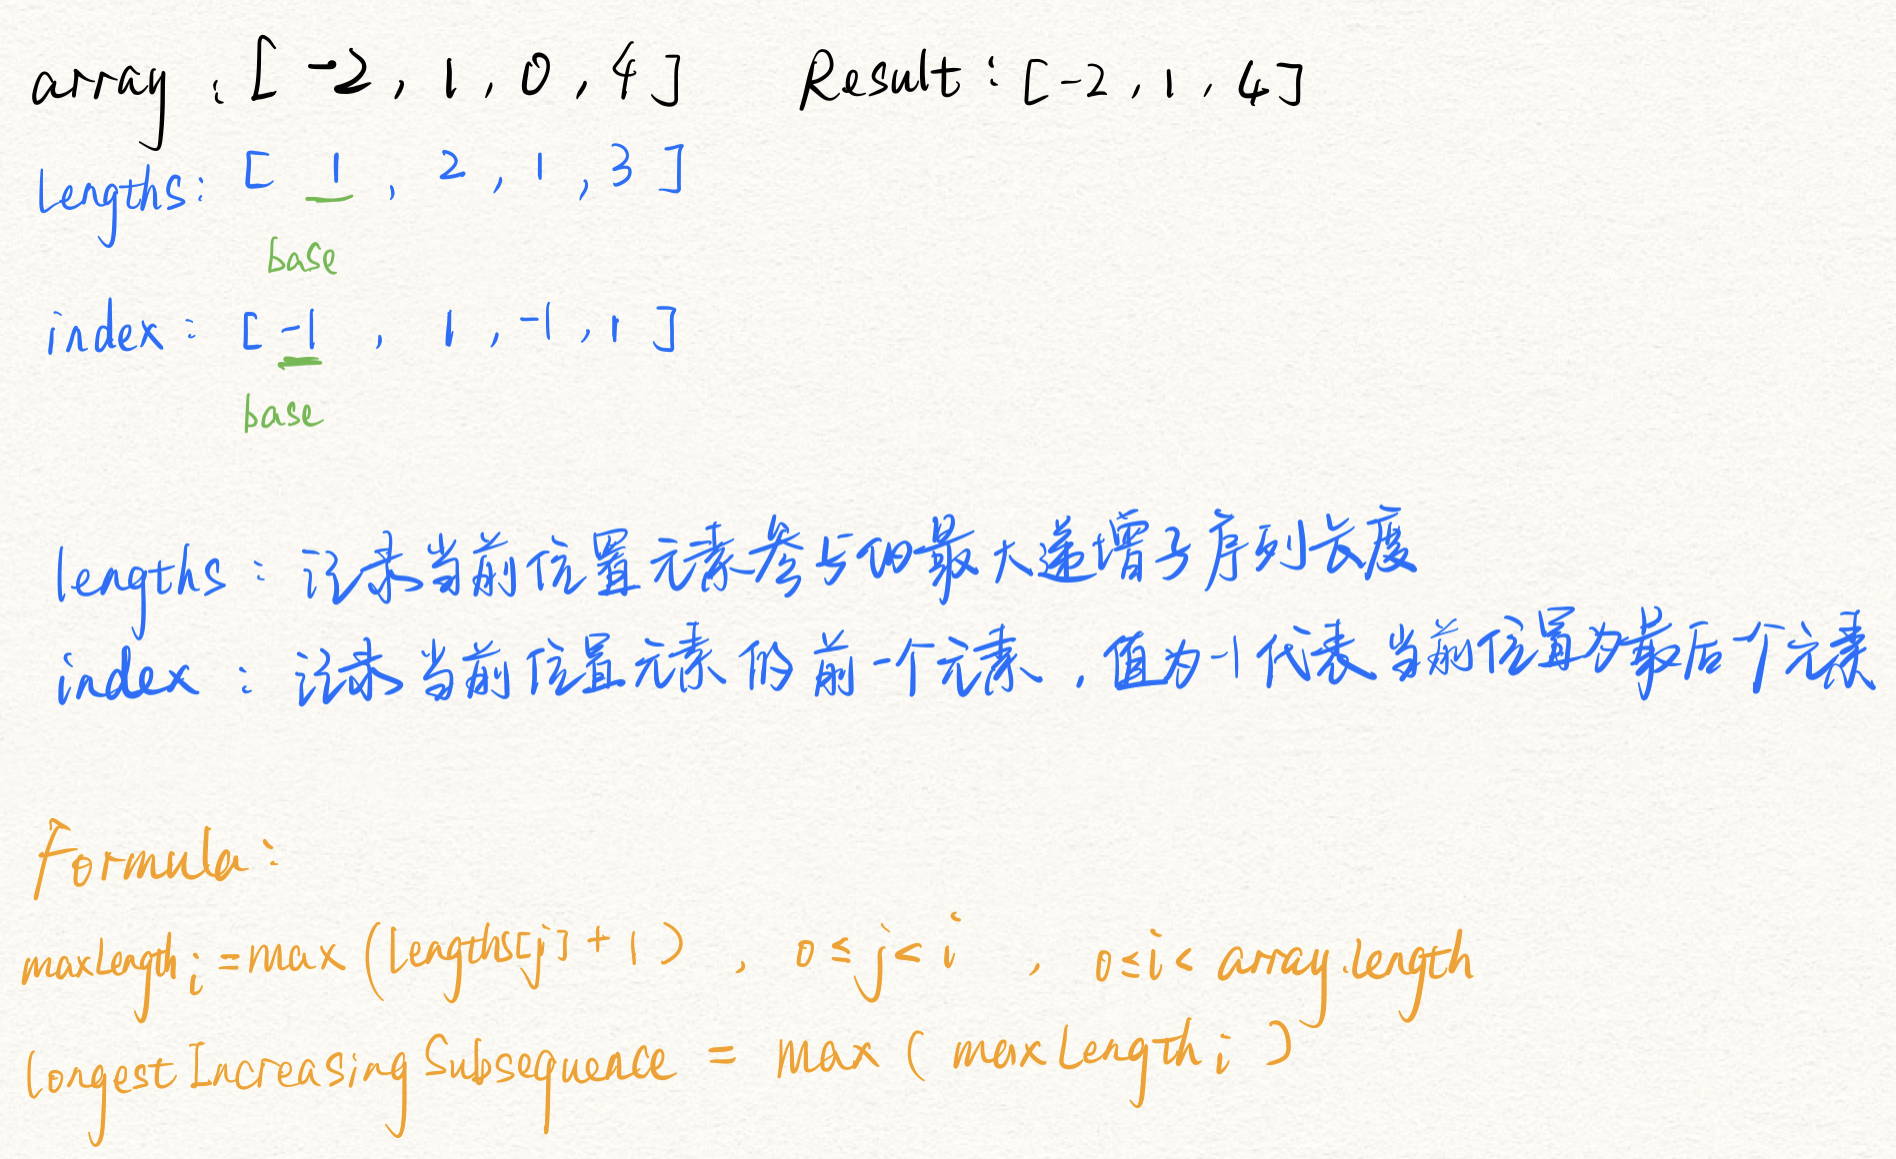 array : [ -2 , 1 , 0 , 4 ] Result : [ -2 , 1 , 4 ]
lengths : [ 1 , 2 , 1 , 3 ]
base
index : [ -1 , 1 , -1 , 1 ]
base
lengths : 记录当前位置元素参与的最大递增子序列长度
index : 记录当前位置元素的前一个元素 , 值为-1代表当前位置为最后一个元素
Formula :
maxLength i = max ( lengths[j] + 1 ) , 0 ≤ j < i , 0 ≤ i < array.length
longest Increasing Subsequence = max ( maxLength i )